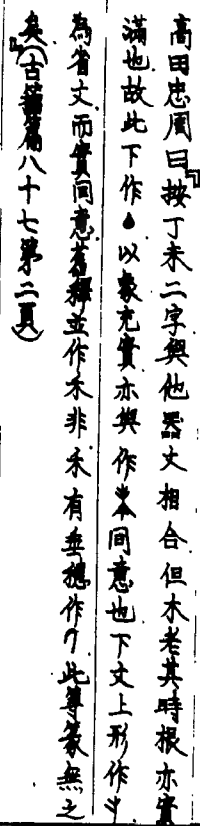 高田忠周曰『按丁未二字與他器文相合但木老其時根亦實
滿也故此下作●以象充實亦與作同意也下文上形作
為省文而實同意舊釋並作禾非禾有垂穗作此等篆無之
矣』(古籀篇八十七第二頁)